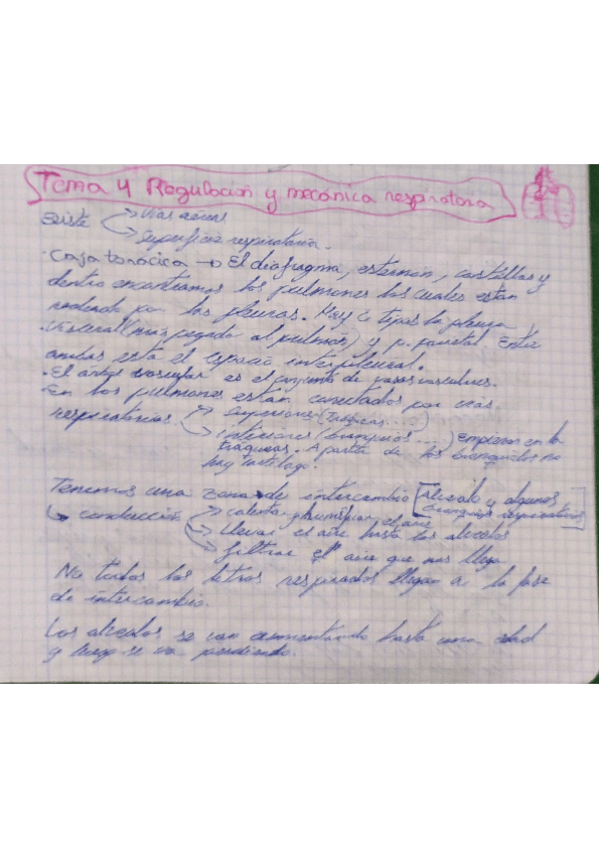 Tema 4 Regulación y mecánica respiratoria
existe → Vías aéreas
→ Superficie respiratoria.
· Caja torácica → El diafragma, esternón, costillas y
dentro encontramos los pulmones los cuales están
rodeado por las pleuras. Hay 2 tipos la pleura
· Visceral (más pegado al pulmón) y p. parietal. Entre
ambas está el espacio interpleural.
· El árbol vascular es el conjunto de vasos vasculares.
- En los pulmones están conectados por vías
respiratorias. → Superiores (
→ inferiores (bronquios ....) empiezan en la
tráqueas. A partir de los bronquiolos no
hay cartílago.
Tenemos una zona de intercambio [Alveolo y algunos
bronquios respiratorios]
↳ conducción → calentar y humificar el aire
→ llevar el aire hasta los alveolos
→ filtrar el aire que nos llega.
No todos los litros respirados llegan a la fase
de intercambio.
Los alveolos se van aumentando hasta una edad
y luego se va perdiendo.